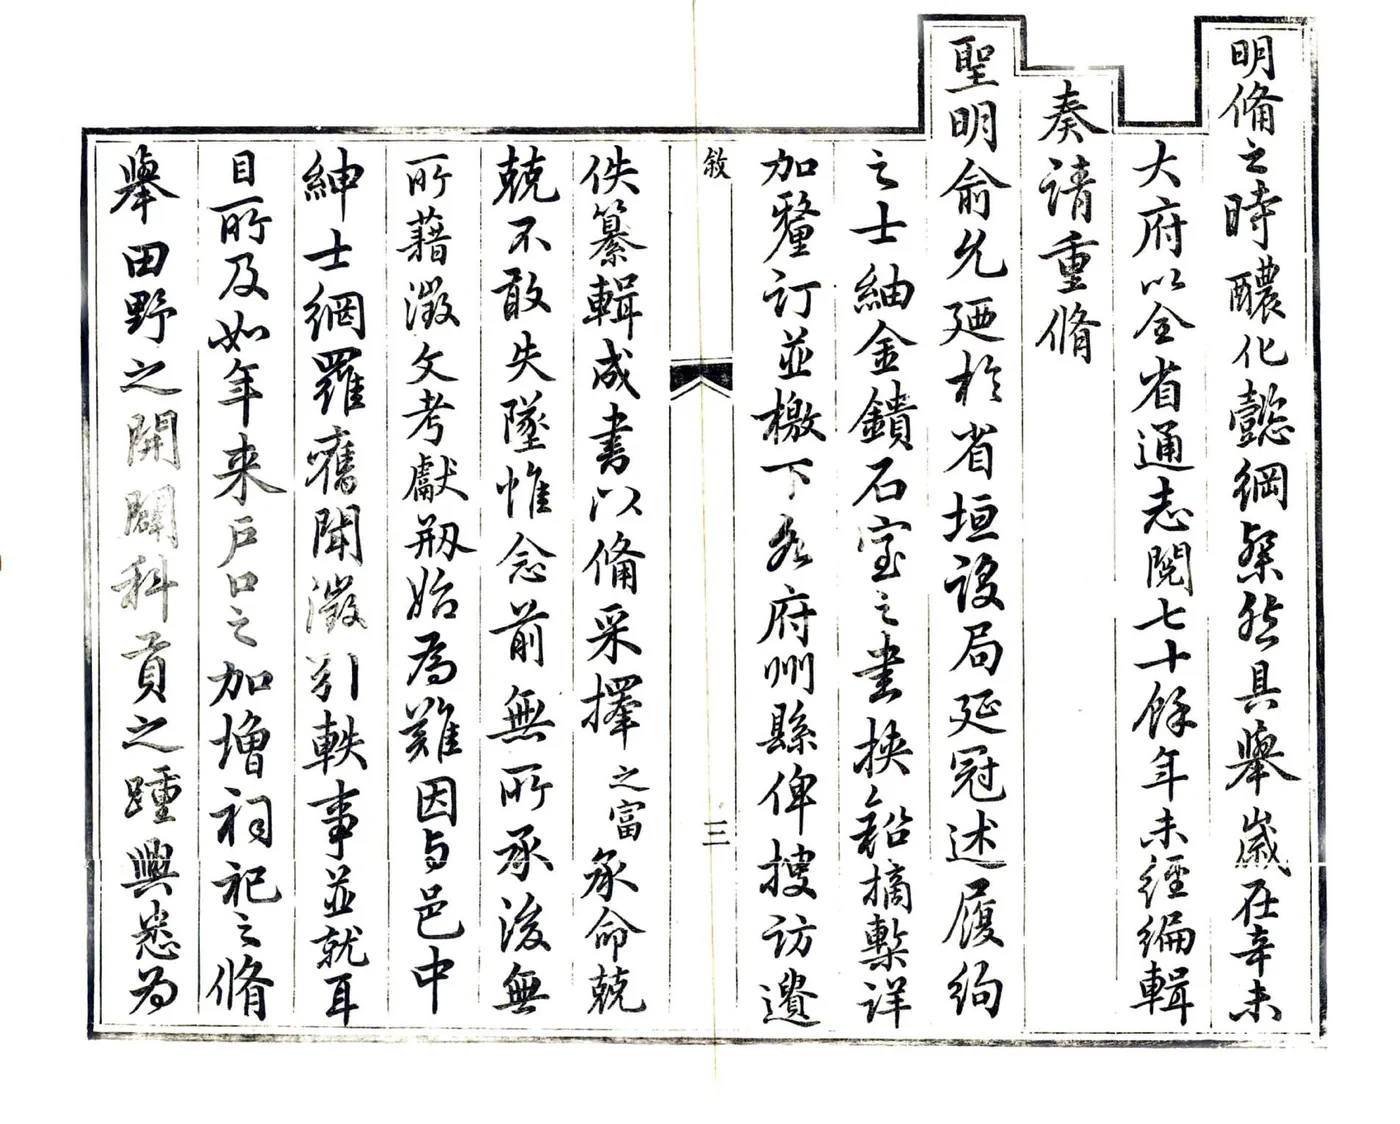 明備之時醲化懿綱粲然具舉歲在辛未
大府以全省通志閱七十餘年未經編輯
奏請重脩
聖明俞允廼於省垣設局延冠述履絢
之士紬金鐀石室之書挾鉛摘槧詳
加釐訂並檄下各府州縣俾搜訪遺
敘
三
佚纂輯成書以備采擇之富承命兢
兢不敢失墜惟念前無所承後無
所藉澂文考獻剏始為難因與邑中
紳士網羅舊聞澂引軼事並就耳
目所及如年来戶口之加增祠祀之脩
舉田野之開闢科貢之踵興悉為